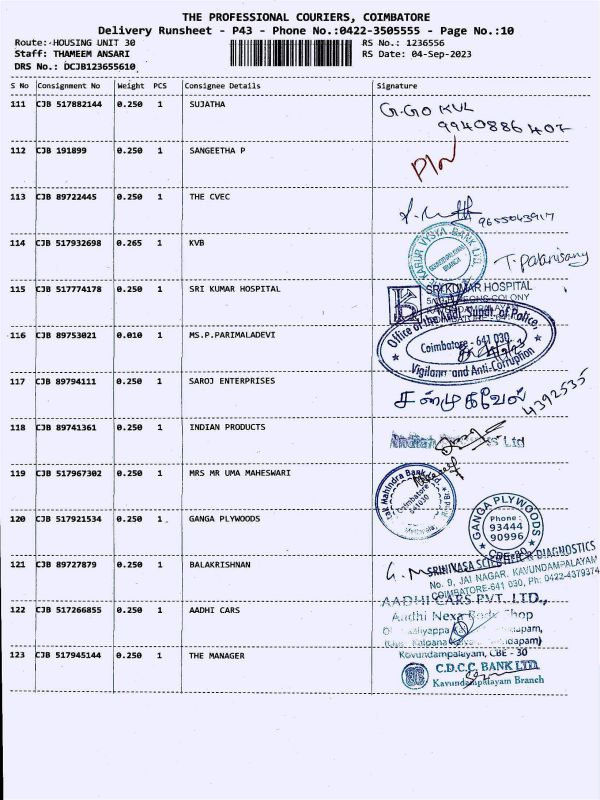 THE PROFESSIONAL COURIERS, COIMBATORE
Delivery Runsheet - P43 - Phone No.:0422-3505555 - Page No.:10
Route: HOUSING UNIT 30 RS No.: 1236556
Staff: THAMEEM ANSARI RS Date: 04-Sep-2023
DRS No.: DCJB123655610
S No Consignment No Weight PCS Consignee Details Signature
111 CJB 517882144 0.250 1 SUJATHA G.GOKUL
9940886407
112 CJB 191899 0.250 1 SANGEETHA P
113 CJB 89722445 0.250 1 THE CVEC 9655043917
114 CJB 517932698 0.265 1 KVB KARUR VYSYA BANK LTD. BRANCH T. Palanisamy
115 CJB 517774178 0.250 1 SRI KUMAR HOSPITAL SRI KUMAR HOSPITAL
COLONY
116 CJB 89753021 0.010 1 MS.P.PARIMALADEVI Office of the Addl. Supdt. of Police,
Coimbatore - 641 030.
Vigilance and Anti-Corruption
117 CJB 89794111 0.250 1 SAROJ ENTERPRISES சண்முகவேல் 4392535
118 CJB 89741361 0.250 1 INDIAN PRODUCTS Indian Ltd
119 CJB 517967302 0.250 1 MRS MR UMA MAHESWARI Mahindra Bank Ltd.
Coimbatore
641030
120 CJB 517921534 0.250 1 GANGA PLYWOODS GANGA PLYWOODS
Phone :
93444
90996
CBE-30
121 CJB 89727879 0.250 1 BALAKRISHNAN SRINIVASA DIAGNOSTICS
No. 9, JAI NAGAR, KAVUNDAMPALAYAM
COIMBATORE-641 030, Ph: 0422-4379374
122 CJB 517266855 0.250 1 AADHI CARS AADHI CARS PVT. LTD.,
Aadhi Nexa Body Shop
Kalpana
Kovundampalayam, CBE - 30
123 CJB 517945144 0.250 1 THE MANAGER C.D.C.C. BANK LTD
Kavundampalayam Branch